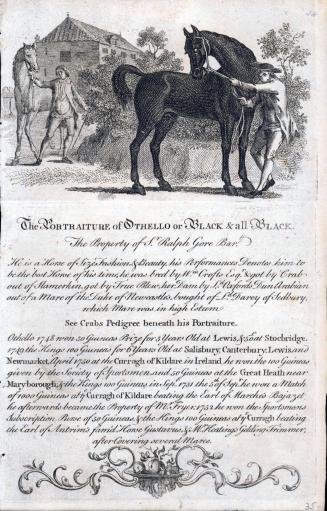 The PORTRAITURE of OTHELLO or BLACK & all BLACK.
The Property of Sr. Ralph Gore Bart.
He is a Horse of Size, Fashion, & Beauty, his Performances Denotes him to
be the best Horse of his time, he was bred by Wm. Crofts Esqr. & got by Crab
out of Slamerkin, got by True Blue, her Dam by Ld. Oxfords Dun Arabian
out of a Mare of the Duke of Newcastles, bought of Ld. Darcy of Sedbury,
which Mare was in high Esteem.
See Crabs Pedigree beneath his Portraiture.
Othello 1748 won 50 Guineas Prize for 5 Years Old at Lewis, & 50 at Stockridge.
1749 the Kings 100 Guineas for 6 Years Old at Salisbury, Canterbury, Lewis, and
Newmarket, April 1751 at the Curragh of Kildare in Ireland, he won the 100 Guineas
given by the Society of Sportsmen, and 50 Guineas at the Great Heath near
Maryborough, & the Kings 100 Guineas in Sepr. 1751 the 5th of Sepr. he won a Match
of 1000 Guineas at ye Curragh of Kildare beating the Earl of March's Bajazet
he afterwards became the Property of Mr. Frye, 1753 he won the Sportsmans
Subscription Purse of 50 Guineas, & the Kings 100 Guineas at ye Curragh beating
the Earl of Antrim's fam'd Horse Gustavus, & Mr. Keatings Gelding Trimmer,
after Covering several Mares.
35